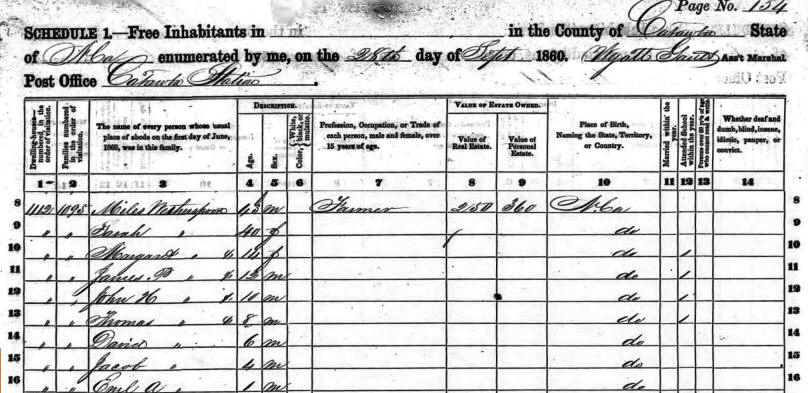 Page No. 154
SCHEDULE 1.—Free Inhabitants in in the County of Catawba State
of N. Ca enumerated by me, on the 28th day of Sept 1860. Wyatt Gantt Ass't Marshal
Post Office Catawba Station
DESCRIPTION. VALUE OF ESTATE OWNED.
Dwelling-houses numbered in the order of visitation. Families numbered in the order of visitation. The name of every person whose usual place of abode on the first day of June, 1860, was in this family. Age. Sex. Color, White, black, or mulatto. Profession, Occupation, or Trade of each person, male and female, over 15 years of age. Value of Real Estate. Value of Personal Estate. Place of Birth, Naming the State, Territory, or Country. Married within the year. Attended School within the year. Persons over 20 y'rs of age who cannot read & write. Whether deaf and dumb, blind, insane, idiotic, pauper, or convict.
1 2 3 4 5 6 7 8 9 10 11 12 13 14
8 1112 1095 Miles Wetherspoon 43 m Farmer 250 360 N. Ca 8
9 " " Sarah " 40 f do 9
10 " " Margaret " 14 f do / 10
11 " " James P " 12 m do / 11
12 " " John H " 10 m do / 12
13 " " Thomas " 8 m do / 13
14 " " David " 6 m do 14
15 " " Jacob " 4 m do 15
16 " " Eml A " 1 m do 16